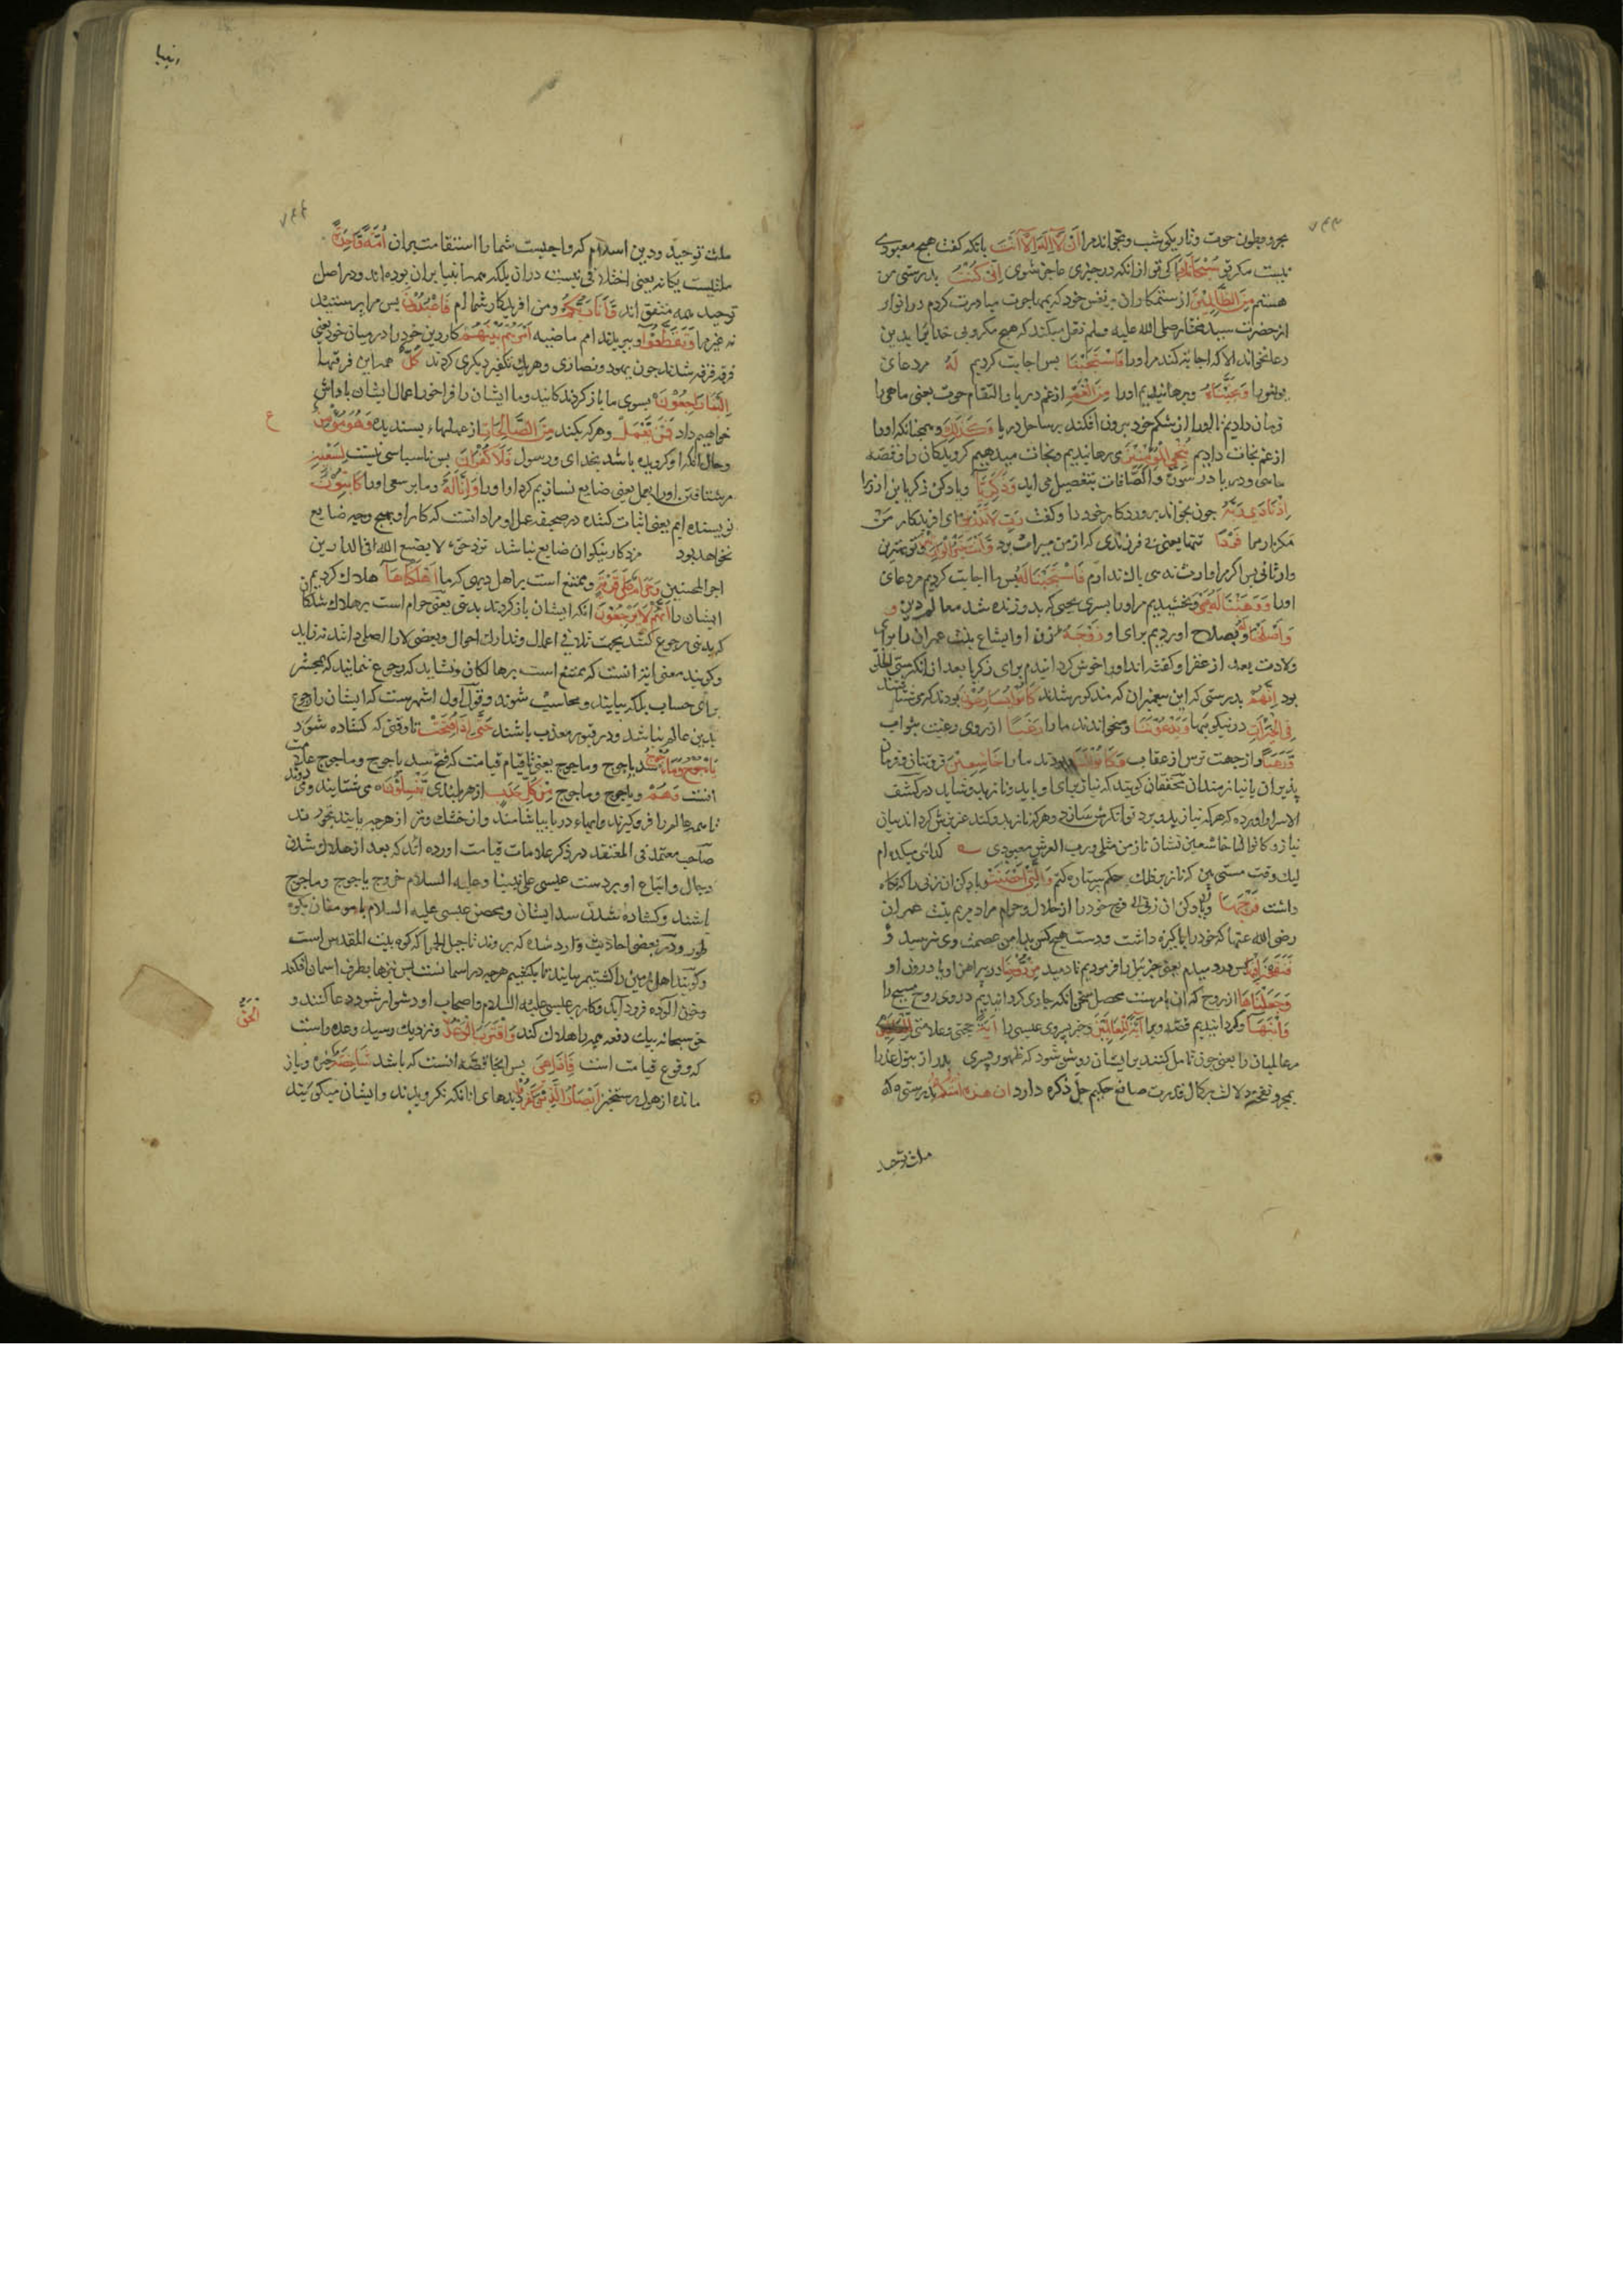 بحر و بطون حوت و تاریکی شب و می‌خواند مرا أَنْ لَا إِلَهَ إِلَّا أَنْتَ بانکه گفت هیچ معبودی
نیست مگر تو سُبْحَانَكَ پاکی تو از آنکه در چیزی عاجز شوی إِنِّي كُنْتُ بدرستی من
هستم مِنَ الظَّالِمِينَ از ستمکاران بر نفس خود که بمهاجرت مبادرت کردم در انوار
از حضرت سید مختار صلی الله علیه وسلم نقل میکند که هیچ مکروبی خدا را بدین
دعا نخواند الا که اجابت کند مر او را فَاسْتَجَبْنَا پس اجابت کردیم لَهُ مر دعای
یونس را وَنَجَّيْنَاهُ وبرهانیدیم او را مِنَ الْغَمِّ از غم دریا و التقام حوت یعنی ماهی را
فرمان دادیم تا او را از شکم خود بیرون افکند بر ساحل دریا وَكَذَلِكَ و همچنانکه او را
از غم نجات دادیم نُنْجِي الْمُؤْمِنِينَ می رهانیدیم و نجات میدهیم گرویدگان را و قصه
ماهی و دریا در سورة والصافات بتفصیل می اید وَزَكَرِيَّا و یاد کن ذکریا بن اذن را
إِذْ نَادَى رَبَّهُ چون بخواند پروردگار خود را و گفت رَبِّ لَا تَذَرْنِي ای افریدکار من
مگذار مرا فَرْدًا تنها یعنی بی فرزندی که از من میراث برد وَأَنْتَ خَيْرُ الْوَارِثِينَ و تو بهترین
وارثانی پس اگر مرا وارث ندهی باک ندارم فَاسْتَجَبْنَا لَهُ پس ما اجابت کردیم مر دعای
او را وَوَهَبْنَا لَهُ يَحْيَى و بخشیدیم مر او را پسری یحیی که بدو زنده شد معالم دین و
وَأَصْلَحْنَا لَهُ و بصلاح اوردیم برای او زَوْجَهُ زن او ایشاع بنت عمران را برای
ولادت بعد از عقر او گفته‌اند او را خوش خلق گردانیدیم برای زکریا بعد از آنکه سیئی الخلق
بود إِنَّهُمْ بدرستی که این پیغمبران که مذکور شدند كَانُوا يُسَارِعُونَ بودند که می شتافتند
فِي الْخَيْرَاتِ در نیکوئیها وَيَدْعُونَنَا و میخواندند ما را رَغَبًا از روی رغبت بثواب
وَرَهَبًا و از جهت ترس از عقاب وَكَانُوا لَنَا و بودند ما را خَاشِعِينَ فروتنان و فرمان
پذیران یا نیازمندان محققان گویند که نیاز برای او باید و ناز بدو شاید در کشف
الاسرار اورده که هر که نیاز بدو برد توانگرش سازد و هر که ناز بدو کند عزیزش گرداند بیان
نیاز وکانوا لنا خاشعین نشان ناز من مثلی ورب العرش معبودی گدای میکده ام
لیک وقت مستی بین که ناز بر فلک و حکم بر ستاره کنم وَالَّتِي أَحْصَنَتْ و یاد کن ان زنی را که نگاه
داشت فَرْجَهَا و یاد کن ان زنی که فرج خود را از حلال و حرام مراد مریم بنت عمران
رضی الله عنها که خود را پاکیزه داشت و دست هیچکس بدامن عصمت وی نرسید و
فَنَفَخْنَا فِيهَا پس در دمیدیم یعنی جبرئیل را فرمودیم تا دمید مِنْ رُوحِنَا در پیراهن او یا درون او
وَجَعَلْنَاهَا از روح که ان بامر ست محصل سخن انکه جاری گردانیدیم در وی روح مسیح را
وَابْنَهَا و گردانیدیم قصه ویرا آيَةً لِلْعَالَمِينَ و خبر پسر وی عیسی را آيَةً حجتی و علامتی لِلْعَالَمِينَ
مر عالمیان را یعنی چون تامل کنند بر ایشان روشن شود که ظهور پسری بی پدر از بتول عذرا
بمجرد نفخه دلالت بر کمال قدرت صانع حکیم جل ذکره دارد إِنَّ هَذِهِ أُمَّتُكُمْ بدرستی که
ملت توحید
انبیا
ملت توحید و دین اسلام که واجبست شما را استقامت بران أُمَّةً وَاحِدَةً
ملتیست یگانه یعنی اختلافی نیست در ان بلکه همه انبیا بران بوده اند و در اصل
توحید همه متفق اند وَأَنَا رَبُّكُمْ و من افریدگار شما ام فَاعْبُدُونِ پس مرا پرستید
نه غیر مرا وَتَقَطَّعُوا و ببریدند امم ماضیه أَمْرَهُمْ بَيْنَهُمْ کار دین خود را در میان خود یعنی
فرقه فرقه شدند چون یهود و نصاری و هر یک تکفیر دیگری کردند كُلٌّ همه این فرقها
إِلَيْنَا رَاجِعُونَ بسوی ما باز گردندگانند و ما ایشان را فراخور اعمال ایشان پاداش
خواهیم داد فَمَنْ يَعْمَلْ و هر که بکند مِنَ الصَّالِحَاتِ از عملهاء پسندیده وَهُوَ مُؤْمِنٌ
و حال انکه او گرویده باشد بخدای و رسول فَلَا كُفْرَانَ پس ناسپاسی نیست لِسَعْيِهِ
مر شتافتن او را بعمل یعنی ضایع نسازیم کردار او را وَإِنَّا لَهُ و ما بر سعی او را كَاتِبُونَ
نویسنده ایم یعنی اثبات کننده در صحیفه عمل او مراد انست که کار او بهیچ وجه ضایع
نخواهد بود مزد کار نیکوان ضایع نباشد نزد حق لا یضیع الله فی الدارین
اجر المحسنین وَحَرَامٌ عَلَى قَرْيَةٍ و ممتنع است بر اهل دیهی که ما أَهْلَكْنَاهَا هلاک کردیم
ایشان را أَنَّهُمْ لَا يَرْجِعُونَ انکه ایشان باز گردند بدنیا یعنی حرام است بر هلاک شدگان
که بدنیا رجوع کنند بجهت تلافی اعمال و تدارک احوال و بعضی لا را اصلی دانند نه زاید
و گویند معنی ایه انست که ممتنع است بر هالکان و نشاید که رجوع ننمایند که بمحشر
برای حساب بلکه بیایند و محاسب شوند و قول اول اشهرست که ایشان را رجوع
بدین عالم نباشد و در قبور معذب باشند حَتَّى إِذَا فُتِحَتْ تا وقتی که گشاده شود
يَأْجُوجُ وَمَأْجُوجُ سد یاجوج و ماجوج یعنی تا قیام قیامت که فتح سد یاجوج و ماجوج علامت
انست وَهُمْ و یاجوج و ماجوج مِنْ كُلِّ حَدَبٍ از هر بلندی يَنْسِلُونَ می شتابند و می دوند
تا همه عالم را فرو گیرند و ابهاء دریا بیاشامند و از خشک و تر از هرچه یابند بخورند
صاحب معتمد فی المعتقد در ذکر علامات قیامت اورده اند که بعد از هلاک شدن
دجال و اتباع او بر دست عیسی علی نبینا وعلیه السلام خروج یاجوج و ماجوج
باشند و گشاده شدن سد ایشان و تحصن عیسی علیه السلام با مومنان بکوه
طور و در بعضی احادیث وارد شده که بروند تا جبل الخمر که کوه بیت المقدس است
و گویند اهل زمین را کشتیم بیایند تا بکشیم هرچه در اسمانست پس تیرها بطرف اسمان افکند
و خون الوده فرود اید و کار بر عیسی علیه السلام و اصحاب او دشوار شود دعا کنند و
حق سبحانه بیک دفعه همه را هلاک کند وَاقْتَرَبَ الْوَعْدُ و نزدیک رسید وعده راست
الْحَقُّ
که وقوع قیامت است فَإِذَا هِيَ پس انجا قصه انست که باشد شَاخِصَةٌ خیره و باز
مانده از هول رستخیز أَبْصَارُ الَّذِينَ كَفَرُوا دیدهای انانکه نگرویدند و ایشان میگویند